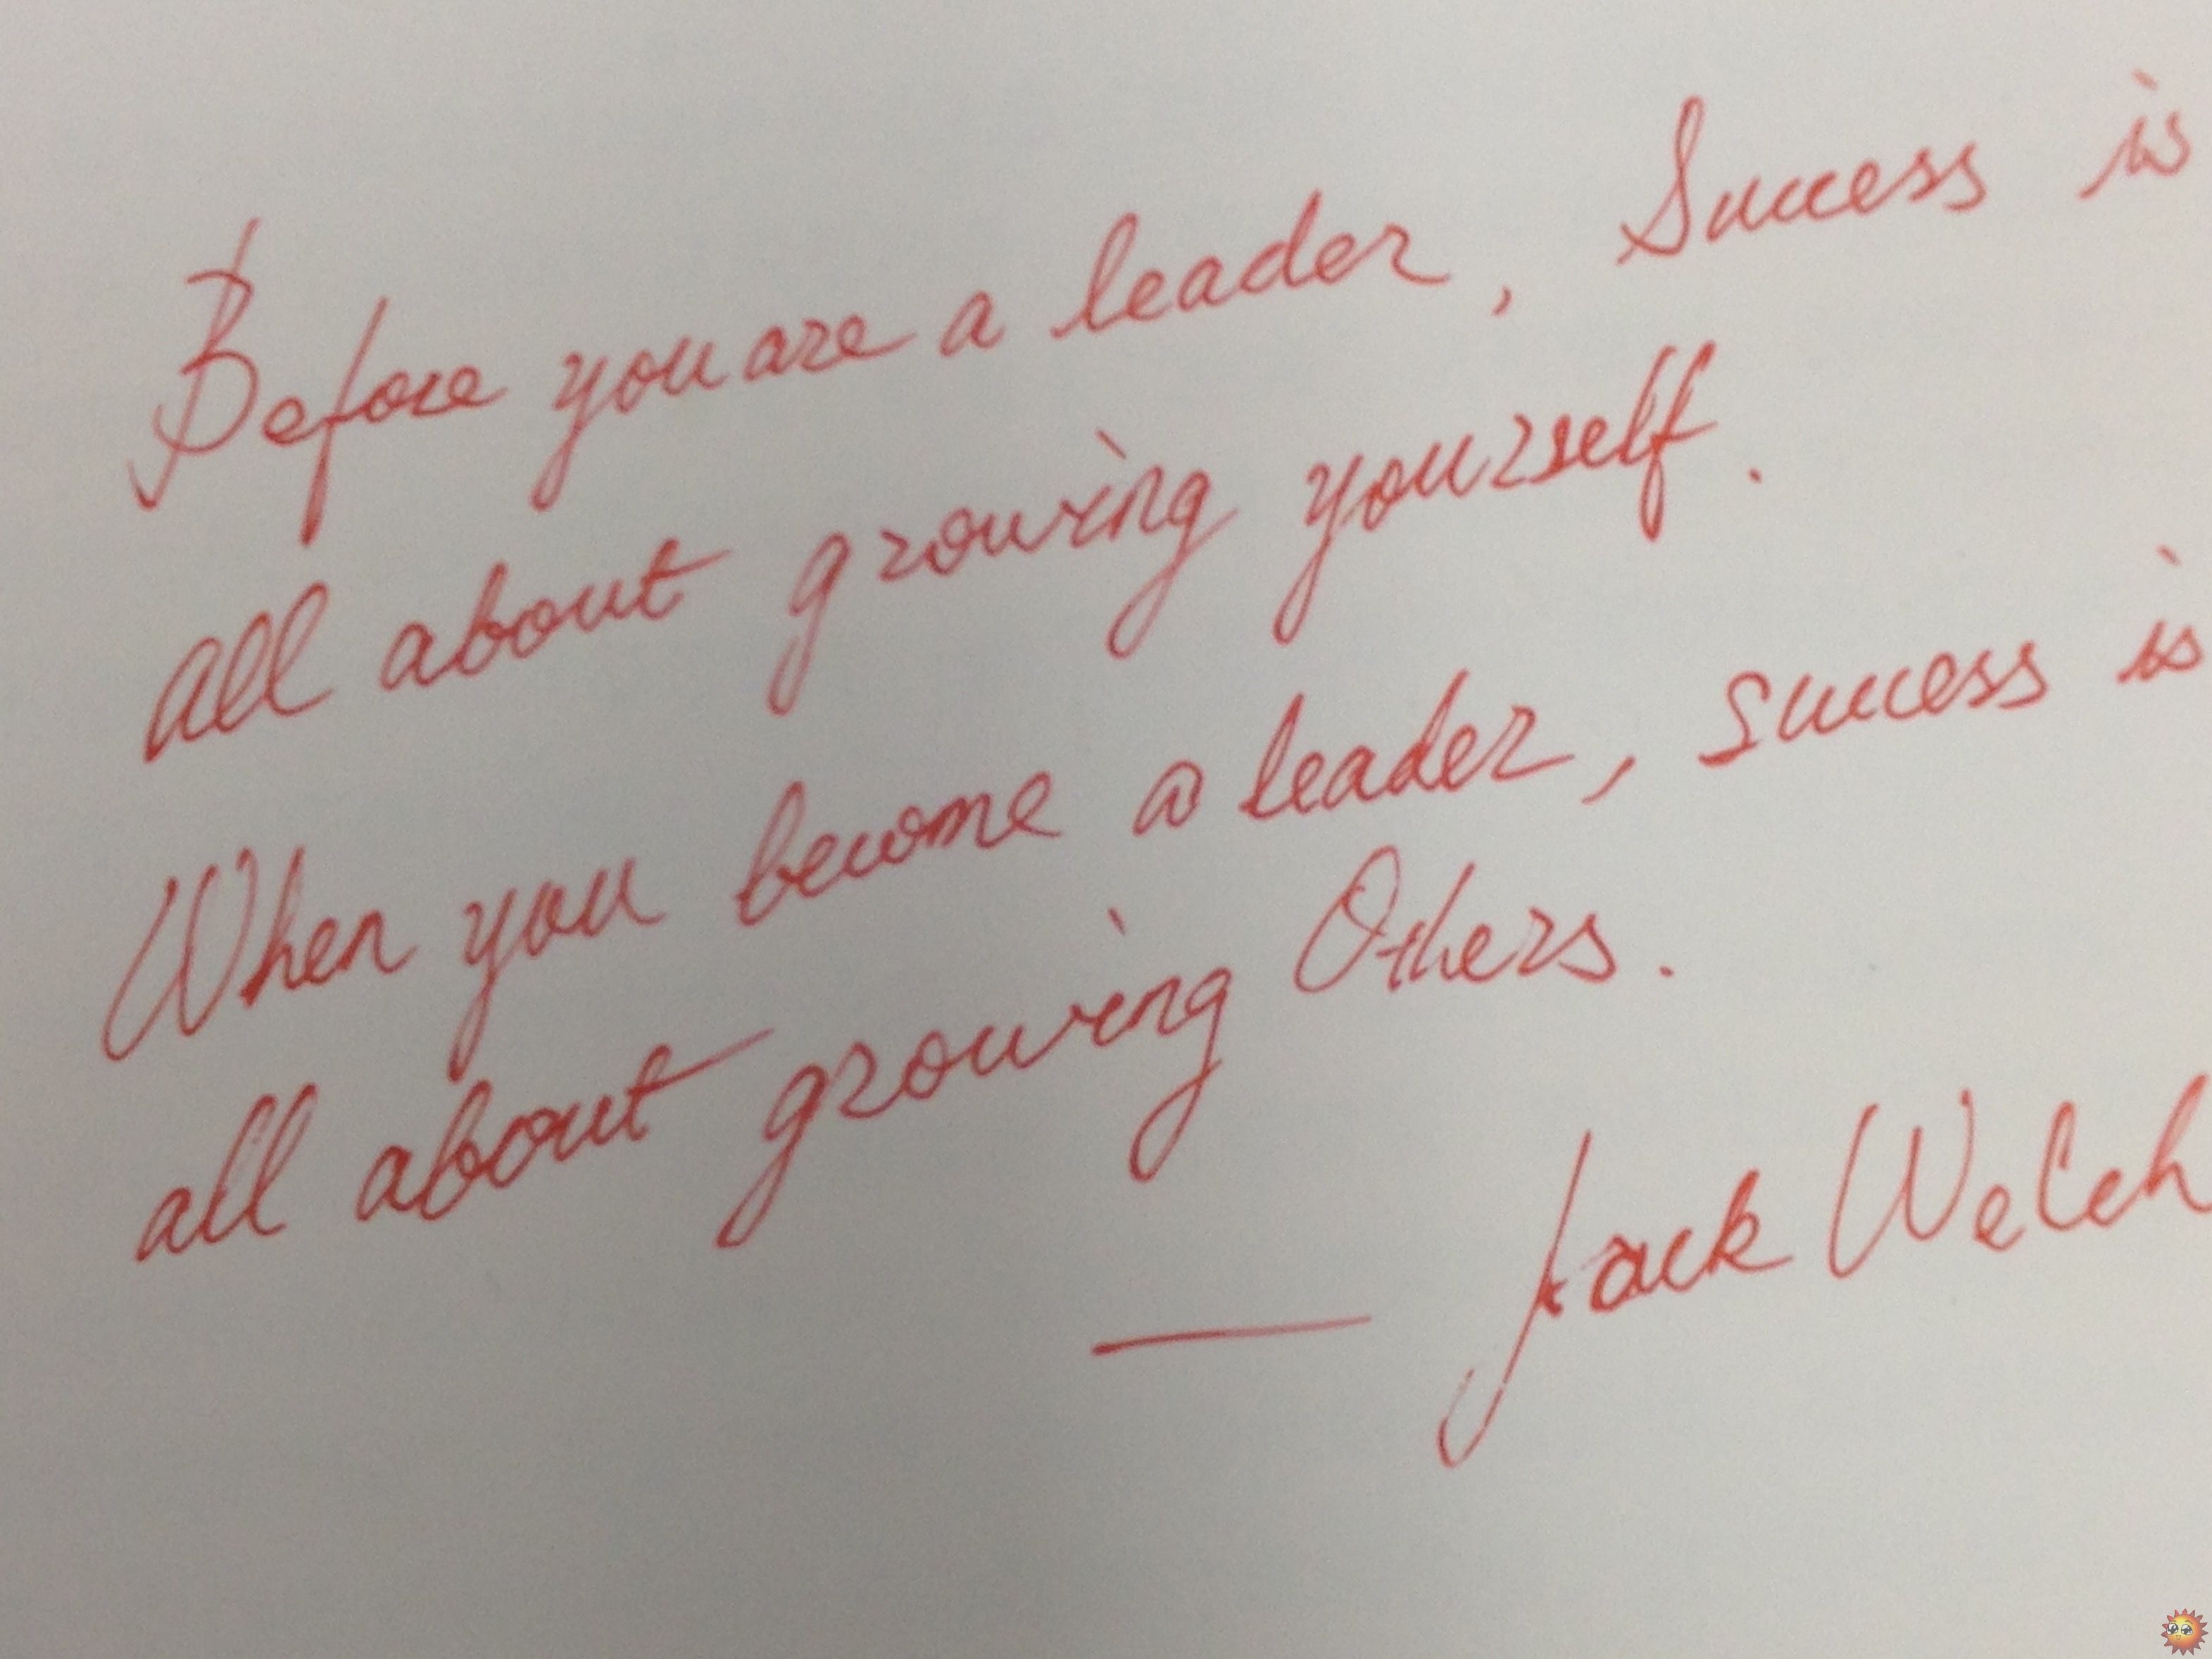 Before you are a leader, Success is
all about growing yourself.
When you become a leader, success is
all about growing Others.
— Jack Welch